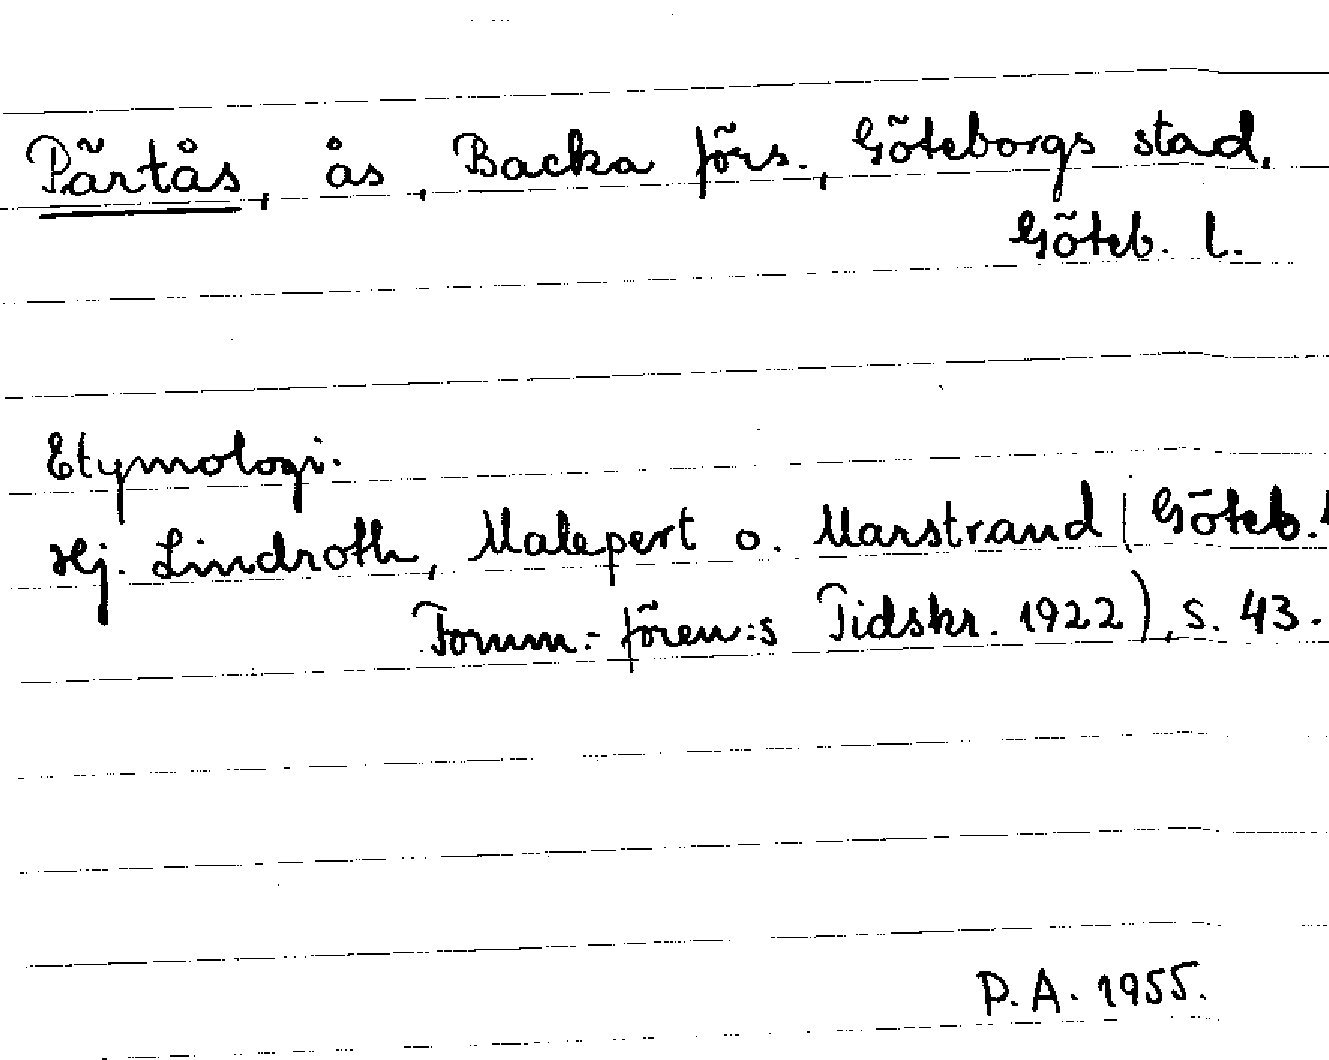 Pärtås, ås, Backa förs., Göteborgs stad,
Göteb. l.
Etymologi.
Hj. Lindroth, Malepert o. Marstrand (Göteb.
Fornm.-fören:s Tidskr. 1922), s. 43.
P.A. 1955.